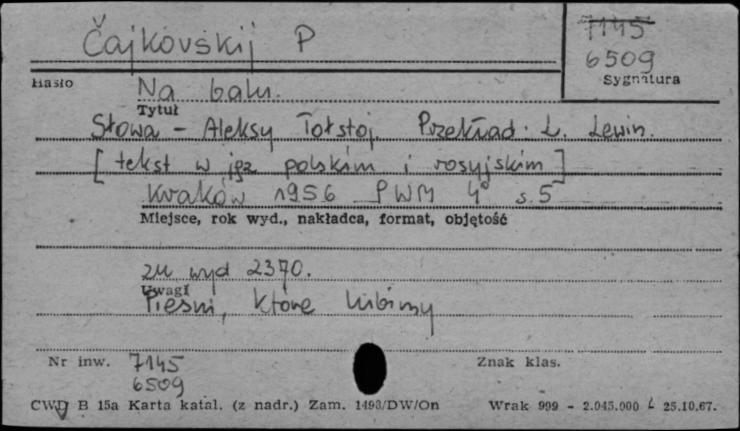 Čajkovskij P
7145
6509
Sygnatura
Hasło
Na balu.
Tytuł
Słowa - Aleksy Tołstoj. Przekład: L. Lewin.
[tekst w jęz polskim i rosyjskim]
Kraków 1956 PWM 4° s. 5
Miejsce, rok wyd., nakładca, format, objętość
zu wyd 2370.
Uwagi
Pieśni, które lubimy
Nr inw. 7145 Znak klas.
6509
CWD B 15a Karta katal. (z nadr.) Zam. 1493/DW/On Wrak 999 - 2.045.000 25.10.67.